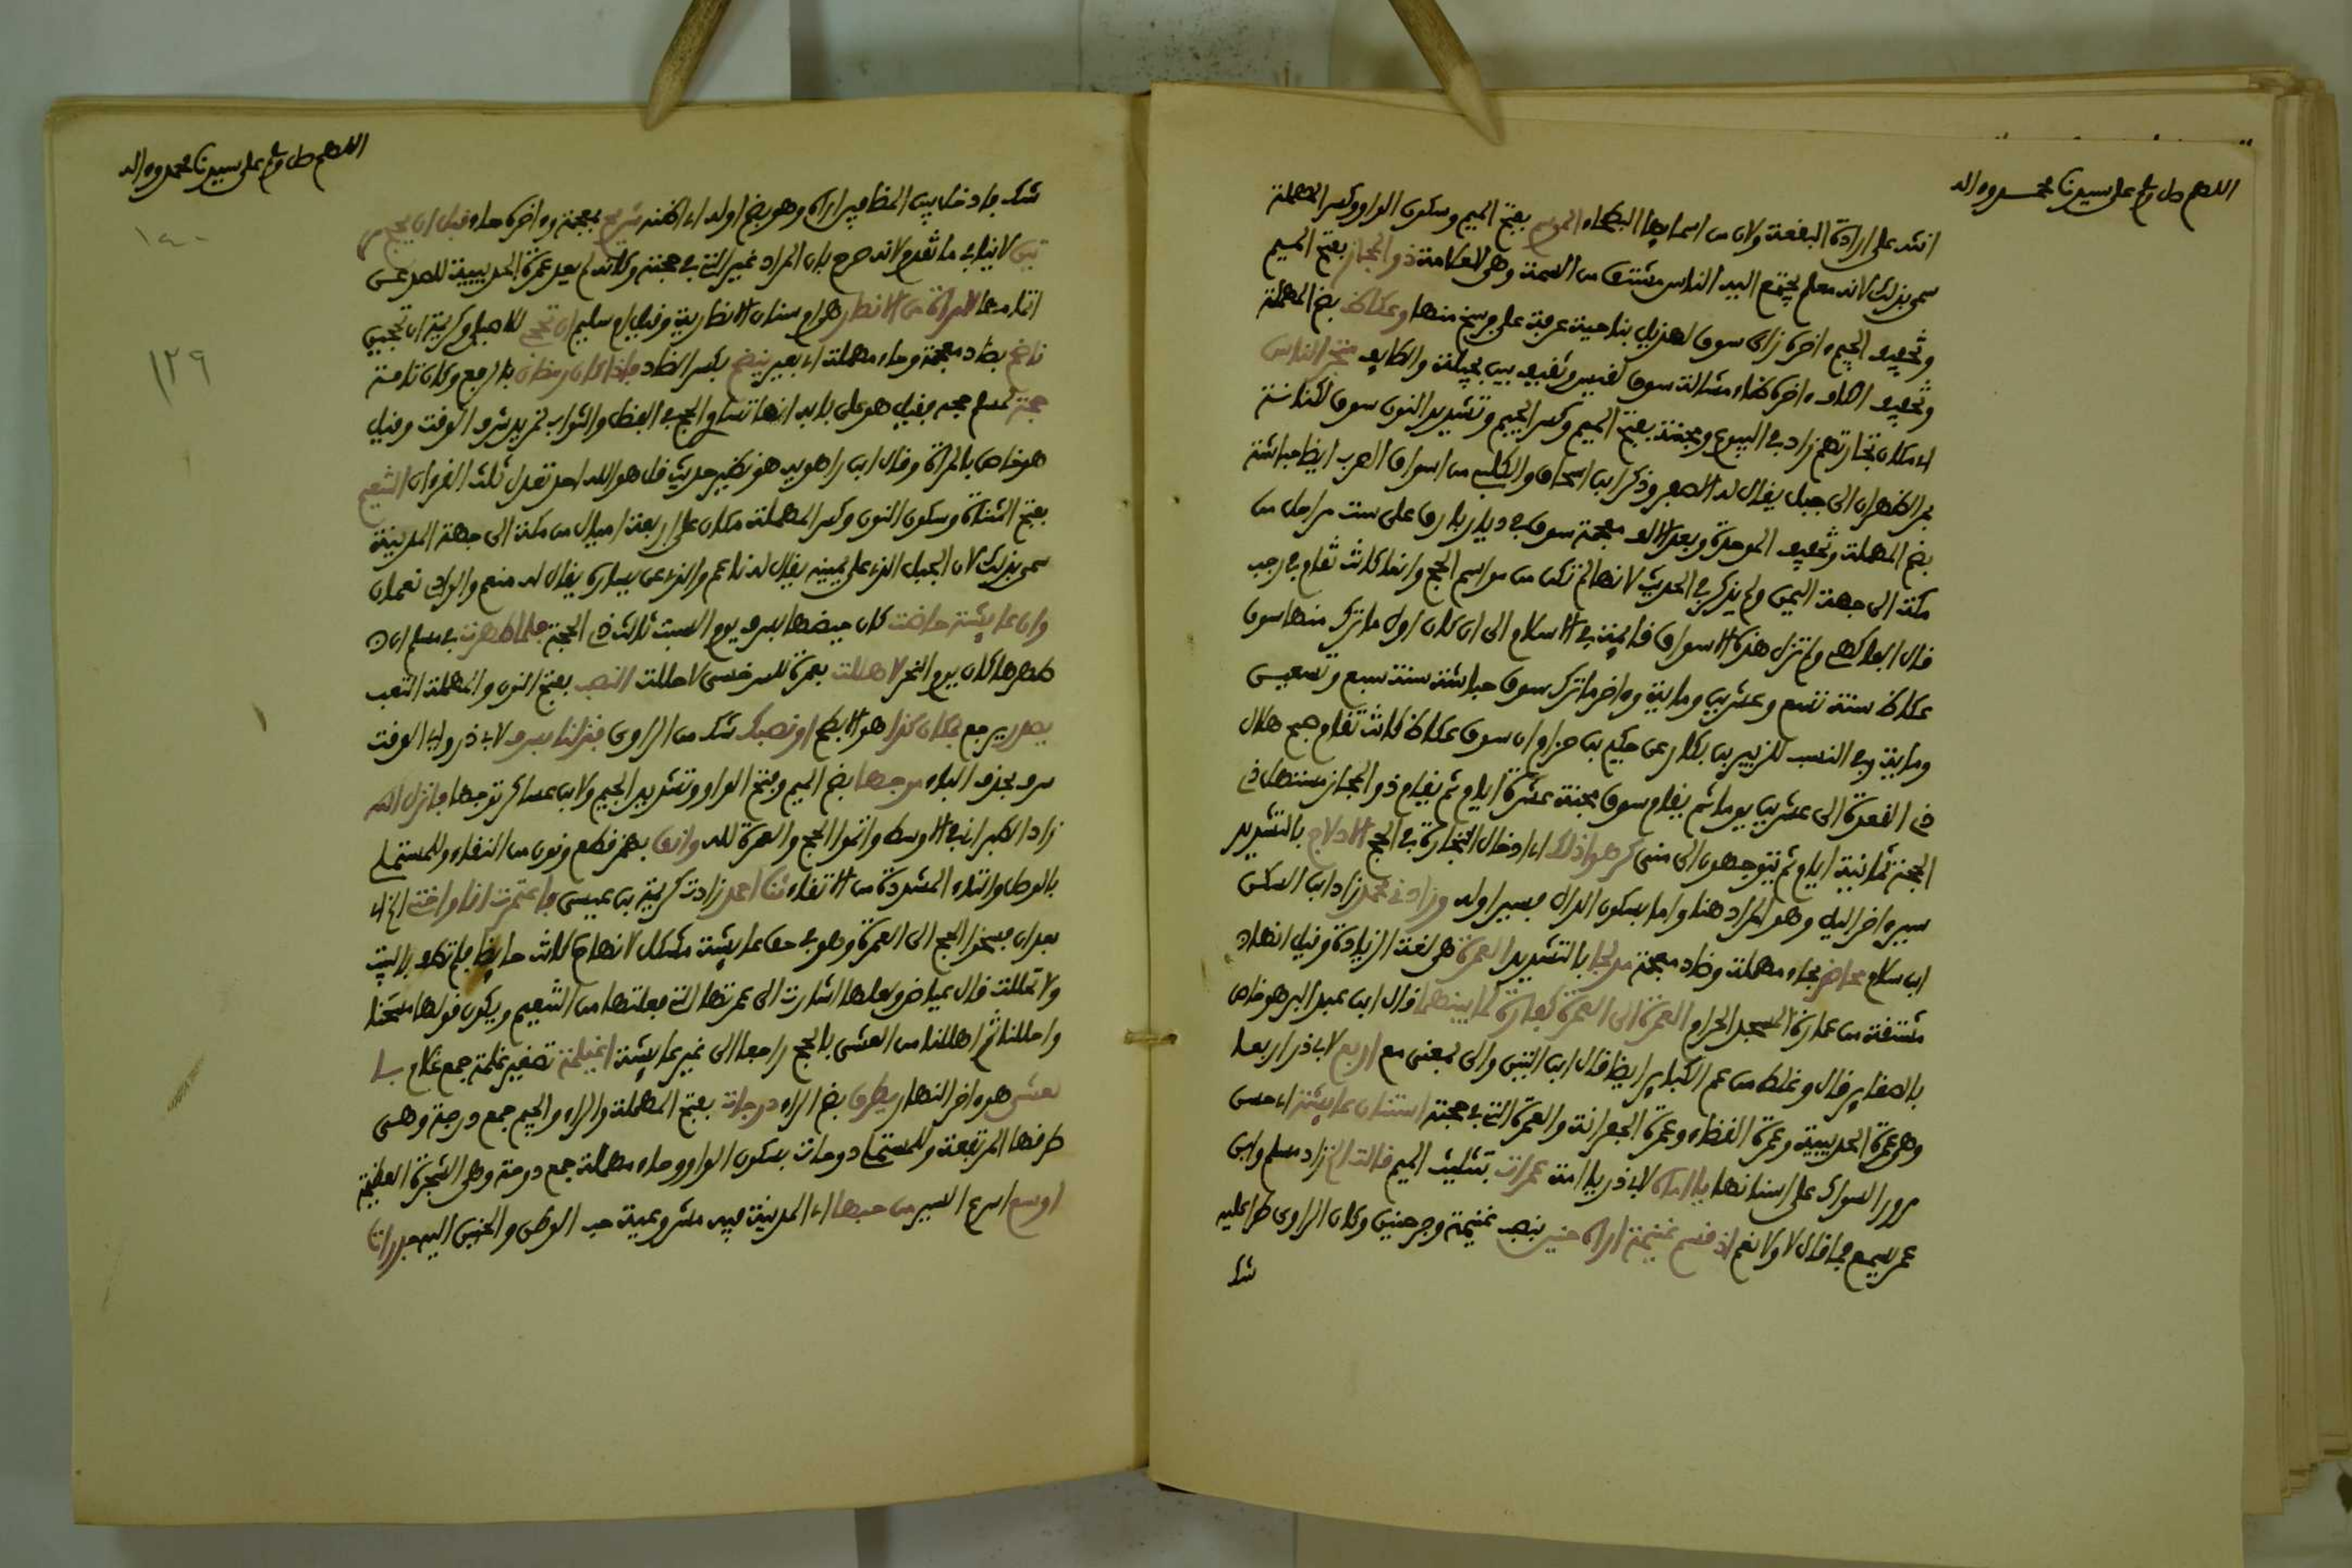 اللهم صل وسلم على سيدنا محمد وءاله
انث على ارادة البقعة ولان من اسمايها البطحاء الموسم بفتح الميم وسكون الواو وكسر المهملة
سمى بذلك لانه معلم يجتمع اليه الناس مشتق من السمة وهى العلامة ذو المجاز بفتح الميم
وتخفيف الجيم ءاخره زاى سوق لهذيل بناحية عرفة على فرسخ منها وعكاظ بضم المهملة
وتخفيف الكاف ءاخره ظاء مشالة سوق لقيس وثقيف بين نخلة والطايف متجر الناس
اى مكان تجارتهم زاد فى البيوع ومجنة بفتح الميم وكسر الجيم وتشديد النون سوق لكنانة
بمر الظهران الى جبل يقال له الاصفر وذكر ابن اسحاق وابن الكلبى من اسواق العرب ايضا حباشة
بضم المهملة وتخفيف الموحدة وبعد الالف معجمة سوق فى ديار بارق على ست مراحل من
مكة الى جهة اليمن ولم يذكر فى الحديث لانها لم تكن من مواسم الحج وانما كانت تقام فى رجب
قال الفاكهى ولم تزل هذه الاسواق قايمة فى الاسلام الى ان كان اول ما ترك منها سوق
عكاظ سنة تسع وعشرين ومايــة وءاخر ما ترك سوق حباشة سنة سبع وتسعين
ومايــة وفى النسب للزبير بن بكار عن حكيم بن حزام ان سوق عكاظ كانت تقام صبح هلال
ذى القعدة الى عشرين يوما ثم يقام سوق مجنة عشرة ايام ثم يقام ذو المجاز مستهل ذى
الحجة ثمانية ايام ثم يتوجهون الى منى كرهوا ذلك اى ادخال التجارة فى الحج الادلاج بالتشديد
سير ءاخر الليل وهو المراد هنا واما بسكون الدال فسير اوله وزادنى محمد زاد ابن السكن
ابن سلام محاضر بحاء مهملة وضاد معجمة مدلجا بالتشديد العمرة هى لغة الزيادة وقيل انها
مشتقة من عمارة المسجد الحرام العمرة الى العمرة كفارة لما بينهما قال ابن عبد البر هو خاص
بالصغاير قال وغلط من عم الكباير ايضا قال ابن التين والى بمعنى مع اربع لابى ذر اربعا
وهى عمرة الحديبية وعمرة القضاء وعمرة الجعرانة والعمرة التى فى حجته استنان عايشة اى حسن
مرور السواك على اسنانها يا اماه لابى ذر يا امة عمرات بتثليث الميم قالت الخ زاد مسلم وابن
عمر يسمع فما قال لا ولا نعم اذ قسم غنيمة اراه حنين بنصب غنيمة وجر حنين وكان الراوى طرا عليه
شك
اللهم صل وسلم على سيدنا محمد وءاله
١٤٠
١٣٩
شك فادخل بين المضافين اراه وهو بضم اوله اى اظنه شريح بمعجمة وءاخره حاء قبل ان يحج مر
تين لا ينافى ما تقدم لانه صرح بان المراد غير التى فى حجته وكانه لم يعد عمرة الحديبية للصد عن
اتمامها لامراة من الانصار هى ام سنان الانصارية وقيل ام سليم ان تحج للاصيلى وكريمة ان تحجين
ناضح بضاد معجمة وحاء مهملة اى بعير ينضح بكسر الضاد فاذا كان رمضان بالرفع وكان تامة
حجة لمسلم حجه فقيل هو على بابه انها تساوى الحج فى الفضل والثواب لمزيد شرف الوقت وقيل
هو خاص بالمراة وقال ابن راهويه هو نظير حديث قل هو الله احد تعدل ثلث القرءان التنعيم
بفتح المثناة وسكون النون وكسر المهملة مكان على اربعة اميال من مكة الى جهة المدينة
سمى بذلك لان الجبل الذى على يمينه يقال له ناعم والذى عن يساره يقال له منعم والوادى نعمان
وان عايشة حاضت كان حيضها بسرف يوم السبت ثالث ذى الحجة فلما طهرت فى مسلم ان
طهرها كان يوم النحر لاهللت بعمرة للسرخسى لاحللت النصب بفتح النون والمهملة التعب
يصدر يرجع بمكان كذا هو الابطح او نصبك شك من الراوى فنزلنا سرف لابى ذر وابى الوقت
سرف بحذف الباء موجها بضم الميم وفتح الواو وتشديد الجيم ولابن عساكر توجها فانزل الله
زاد الطبرانى فى الاوسط واتموا الحج والعمرة لله وانق بهمز قطع ونون من النقاء وللمستملى
بالوصل والتاء المشددة من الاتقاء ثنا احمد زادت كريمة بن عيسى فاعتمرت انا واختى الخ اى
بعد ان فسخوا الحج الى العمرة وهو فى حق عايشة مشكل لانها كانت حايضا فلم تطف بالبيت
ولا تحللت قال عياض ولعلها اشارت الى عمرتها التى فعلتها من التنعيم ويكون قولها مسحنا
واحللنا ثم اهللنا من العشى بالحج راجعا الى غير عايشة اغيلمة تصغير غلمة جمع غلام
العشى هو ءاخر النهار يطرق بضم الراء درجات بفتح المهملة والراء والجيم جمع درجة وهى
طرقها المرتفعة وللمستملى دوحات بسكون الواو وحاء مهملة جمع دوحة وهى الشجرة العظيمة
اوضع اسرع السير من حبها اى المدينة فيه مشروعية حب الوطن والحنين اليه جدرات